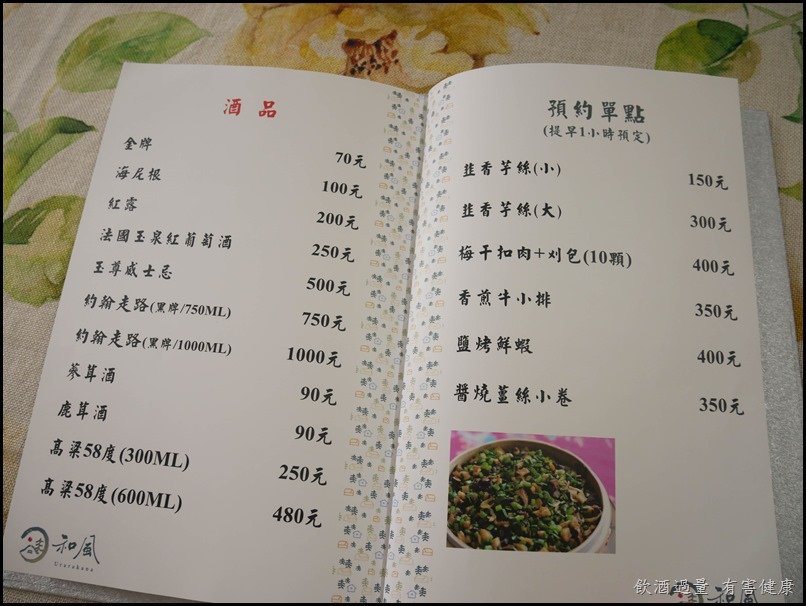 酒品
金牌 70元
海尼根 100元
紅露 200元
法國玉泉紅葡萄酒 250元
玉尊威士忌 500元
約翰走路(黑牌/750ML) 750元
約翰走路(黑牌/1000ML) 1000元
蔘茸酒 90元
鹿茸酒 90元
高粱58度(300ML) 250元
高粱58度(600ML) 480元
和風
Urarakana
預約單點
(提早1小時預定)
韮香芋絲(小) 150元
韮香芋絲(大) 300元
梅干扣肉+刈包(10顆) 400元
香煎牛小排 350元
鹽烤鮮蝦 400元
醬燒薑絲小卷 350元
和風
飲酒過量 有害健康